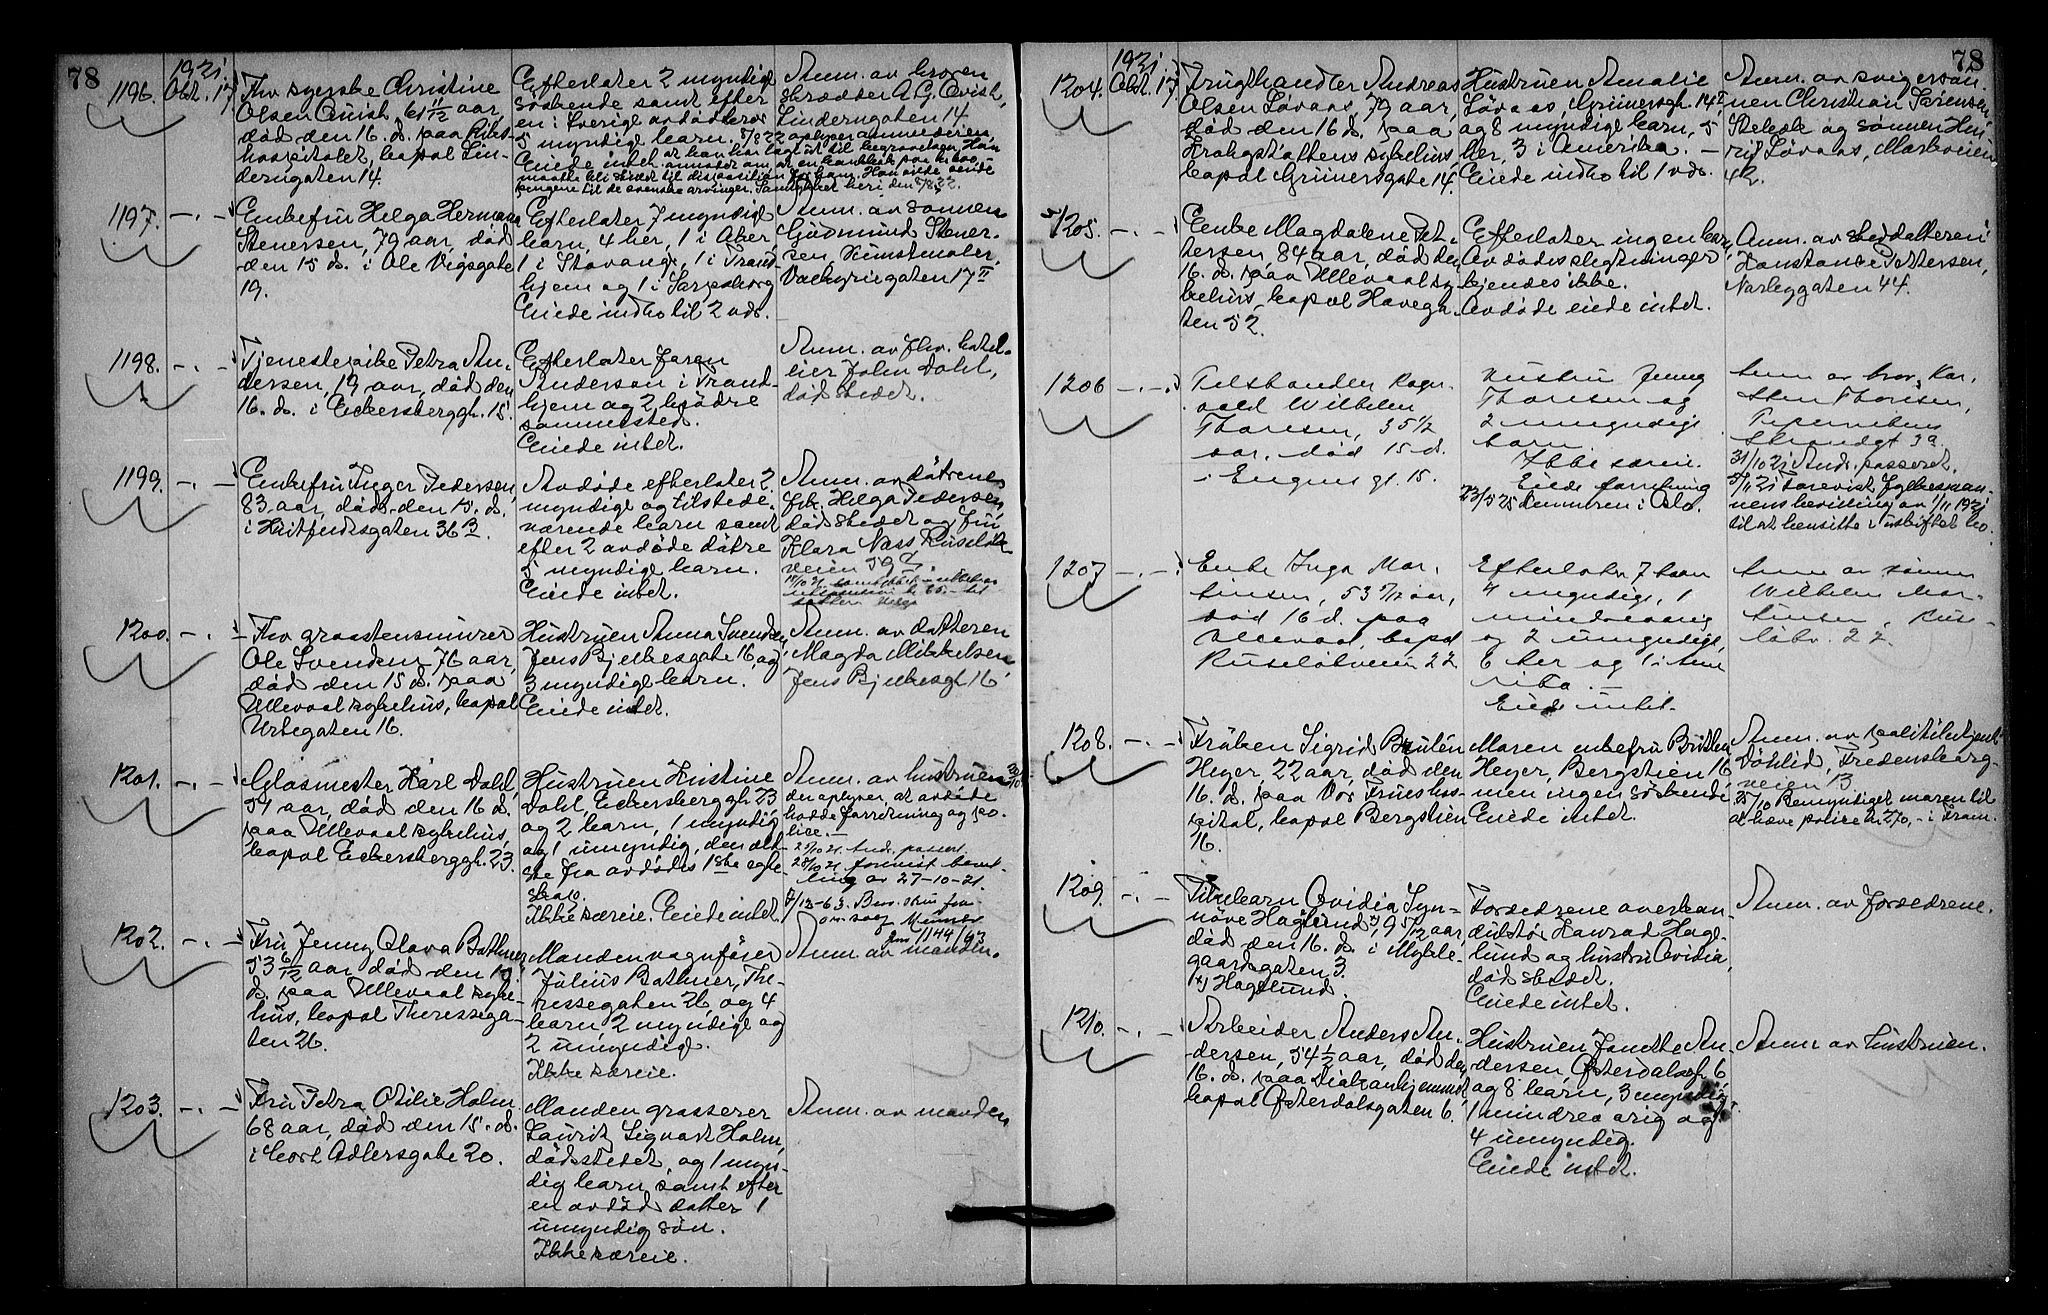 78
1921.
1196. Okt. 17
Fhv syerske Christine
Olsen Quist, 61 11/12 aar,
død den 16. d. paa Riks-
hospitalet, bopæl Lin-
derngaten 14.
Efterlater 2 myndige
søskende samt efter
en i Sverige avdød bror
5 myndige barn.
Eiede intet.
Anm. av broren
skrædder A. G. Qvist,
Linderngaten 14.
1197. -.-
Enkefru Helga Hermane
Stenersen, 79 aar, død
den 15 ds. i Ole Vigsgate
19.
Efterlater 7 myndige
barn, 4 her, 1 i Aker,
1 i Stavanger, 1 i Trond-
hjem og 1 i Sarpsborg
Eiede indbo til 2 vds.
Anm. av sønnen
Gudmund Stener-
sen, Kunstmaler,
Valkyriegaten 17 II
1198. -.-
Tjenestepike Petra An-
dersen, 19 aar, død den
16. ds. i Eckersberggt. 15.
Efterlater faren
Anderson i Trond-
hjem og 2 brødre
sammested.
Eiede intet.
Anm. av fhv. hotel-
eier John Dahl,
dødstedet.
1199. -.-
Enkefru Inger Pedersen
83 aar, død den 15. d.
i Huitfeldtsgaten 36 B.
Avdøde efterlater 2
myndige og tilstede-
værende barn samt
efter 2 avdøde døtre
5 myndige barn.
Eiede intet.
Anm. av døtrene
frk. Helga Pedersen
dødstedet og fru
Klara Næss Ruseløk-
veien 59
1200. -.-
Fhv graastensmurer
Ole Svendsen, 76 aar,
død den 15 d. paa
Ullevaal sykehus, bopæl
Urtegaten 16.
Hustruen Anna Svendsen,
Jens Bjelkesgate 16, og
3 myndige barn.
Eiede intet.
Anm. av datteren
Magda Mikkelsen,
Jens Bjelkesgt 16
1201. -.-
Glasmester Karl Dahl,
51 aar, død den 16 d.
paa Ullevaal sykehus,
bopæl Eckersberggt. 23.
Hustruen Kristine
Dahl, Eckersberggt. 23
og 2 barn, 1 myndig
og 1 umyndig, den æld-
ste fra avdødes 1ste egte-
skap.
Ikke særeie. Eiede intet.
Anm. av hustruen
der oplyser, at avdøde
hadde forretning og po-
lice.-
25/10 21 And. passert.
28/10 21 forevist bevil-
ling av 27-10-21.
1202. -.-
Fru Jenny Olava Bathner
53 6/12 aar, død den
d. paa Ullevaal syke-
hus, bopæl Theresesga-
ten 26.
Manden vognfører
Julius Bathner, The-
resesgaten 26, og 4
barn, 2 myndige og
2 umyndige.
Ikke særeie.
Anm. av manden.
1203. -.-
Fru Petra Otilie Holm
68 aar, død den 15. d.
i Cort Adlersgate 20.
Manden grosserer
Lauritz Sigvart Holm,
dødsstedet, og 1 myn-
dig barn samt efter
en avdød datter 1
umyndig søn.
Ikke særeie.
Anm. av manden
78
1921.
1204. Okt. 17
Frugthandler Andreas
Olsen Løvaas, 79 aar,
død den 16 d. paa
Krohgstøttens sykehus
bopæl Grünersgate 14.
Hustruen Amalie
Løvaas, Grünersgt. 14
og 8 myndige barn, 5
her, 3 i Amerika. -
Eiede indbo til 1 vds.
Anm. av svigersøn-
nen Christian Sørensen
og sønnen Hen-
rik Løvaas, Markveien
42.
1205. -.-
Enke Magdalene Pet-
tersen, 84 aar, død den
16. d. paa Ullevaal sy-
kehus, bopæl Havega-
ten 52.
Efterlater ingen barn,
Avdødes slegtninger
kjendes ikke.
Avdøde eiede intet.
Anm. av steddatteren
Konstance Pettersen,
Norbygaten 44.
1206 -.-
Ragn-
vald Wilhelm
Thoresen, 35 1/2
aar, død 15 d.
i Eugens gt. 15.
Hustru Jenny
Thoresen og
2 umyndige
barn.
Ikke særeie.
Eiede forretning
Anm av bror, Kar-
sten Thoresen,
31/10 21 And. passeret.
1207 -.-
Enke Inga Mar-
tinsen, 53 7/12 aar,
død 16 d. paa
Ullevaal, bopæl
Ruseløkveien 22
Efterlater 7 barn
4 myndige, 1
mindreaarig
og 2 umyndige,
6 her og 1 i Ame
rika. -
Eiede intet.
Anm av sønnen
Wilhelm Mar-
tinsen, Ruse-
løkv. 22
1208. -.-
Frøken Sigrid Brulén
Heyer, 22 aar, død den
16. d. paa Vor Frues hos-
pital, bopæl Bergstien
16.
Moren enkefru
Heyer, Bergstien 16
men ingen søskende
Eiede intet.
Anm. av politibetjent
Døhlid, Fredensborg-
veien 13
25/10 Bemyndiget moren til
at hæve police kr. 270,- i Fram.
1209. -.-
Pikebarn Ovidia Syn-
nøve Haglund x), 9 5/12 aar,
død den 16. d. i Mykle-
gaardsgaten 3.
x) Hagelund.
Forældrene overkon-
duktør Konrad Hage-
lund og hustru Ovidia,
dødstedet.
Eiede intet.
Anm. av forældrene.
1210. -.-
Arbeider Anders An-
dersen, 54 1/2 aar, død den
16. d. paa Diakonhjemmet
bopæl Østerdalsgaten 6.
Hustruen Janette An-
dersen, Østerdalsgt. 6
og 8 barn, 3 myndig,
1 mindreaarig og
4 umyndig.
Eiede intet.
Anm. av hustruen.